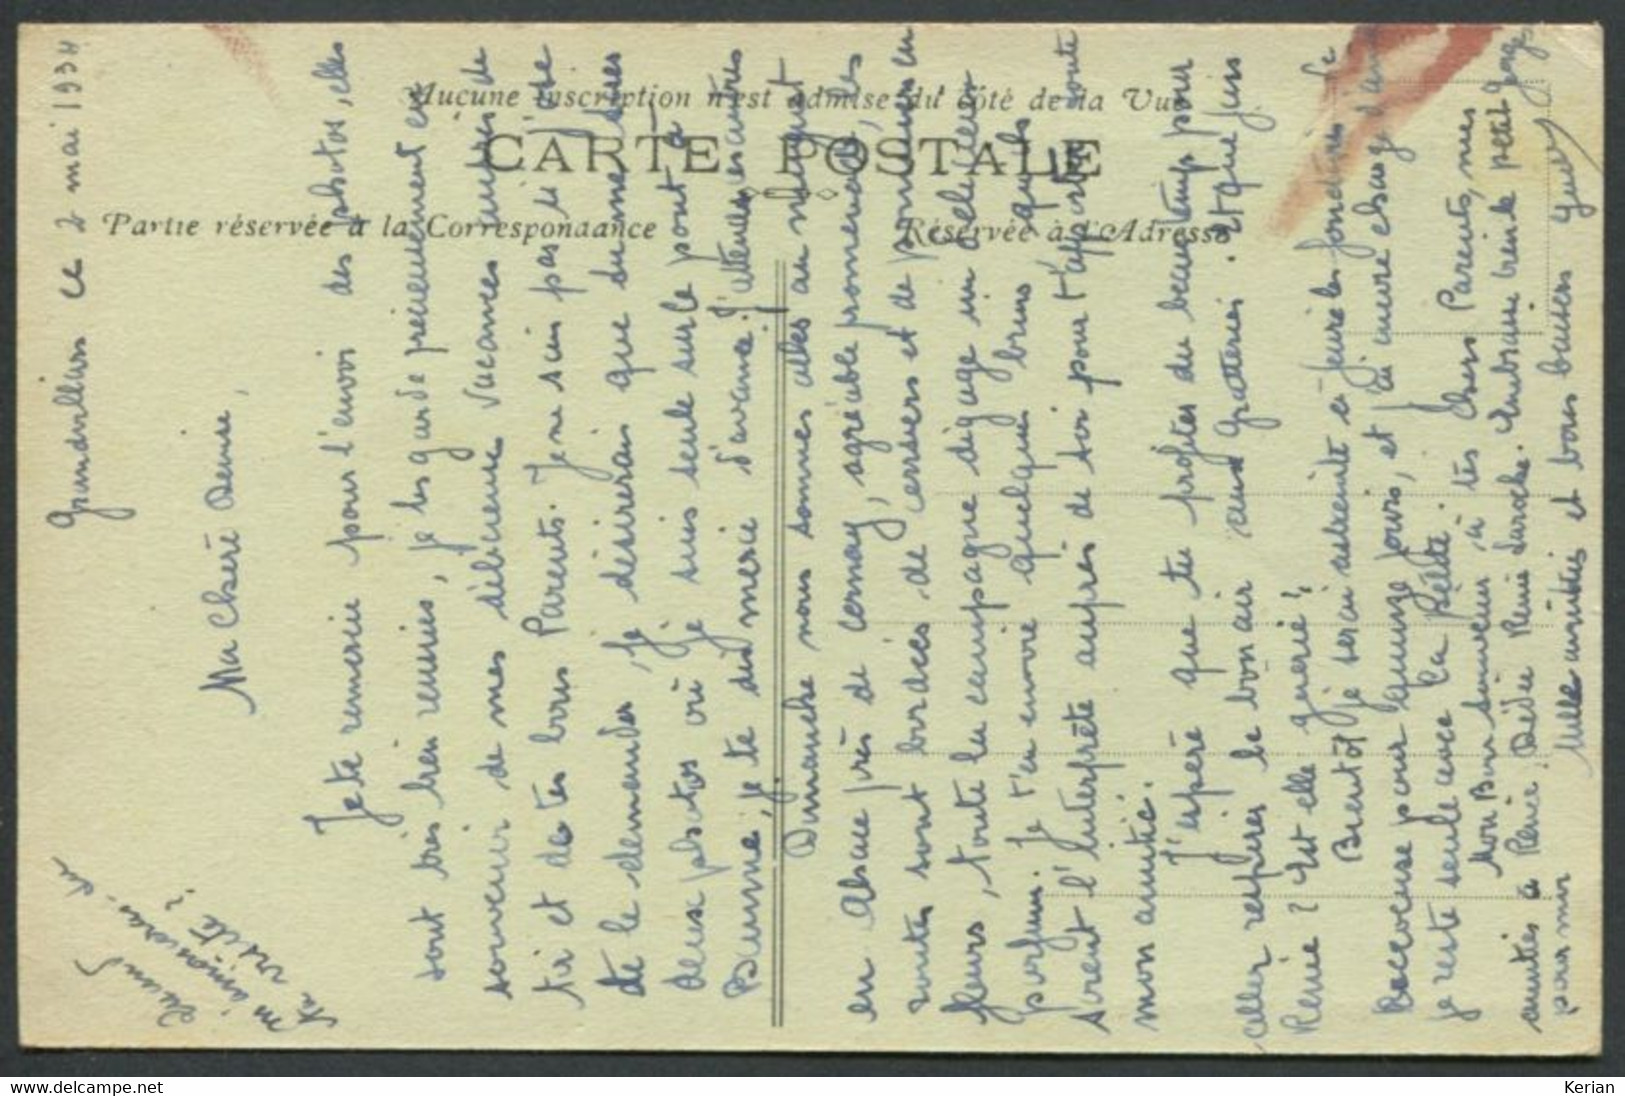 Aucune inscription n'est admise du côté de la Vue
CARTE POSTALE
Partie réservée à la Correspondance
Réservée à l'Adresse
Grandvillars ce 2 mai 1934
Ma Chère Denise,
Je te remercie pour l'envoi des photos, elles
sont très bien réunies, je les garde précieusement en
souvenir de mes délicieuse vacances auprès de
toi et de tes bons Parents. Je ne sais pas si j'ose
te le demander, je désirerais que tu me tires
deux photos où je suis seule sur le pont à
je te dis merci d'avance. J'attends
Dimanche nous sommes allés au
en Alsace près de Cernay, agréable promenade, les
routes sont bordées de cerisiers et de pommiers en
fleurs, toute la campagne dégage un délicieux
parfum. Je t'en envoie quelques brins qu'ils
soient l'interprète auprès de toi pour t'apporter toute
mon amitié.
J'espère que tu profites du beau temps pour
aller respirer le bon air aux Gratteries. Et que fais
Renée ? Est elle guérie ?
Bientôt je serai
pour quinze jours, et
je reste seule avec la petite.
Mon Bon souvenir à tes Chers Parents, mes
amitiés à Renée, Dédée Renée Laroche.
par mi
Mille amitiés et bons baisers
Quand
ta visite ?
Kerian